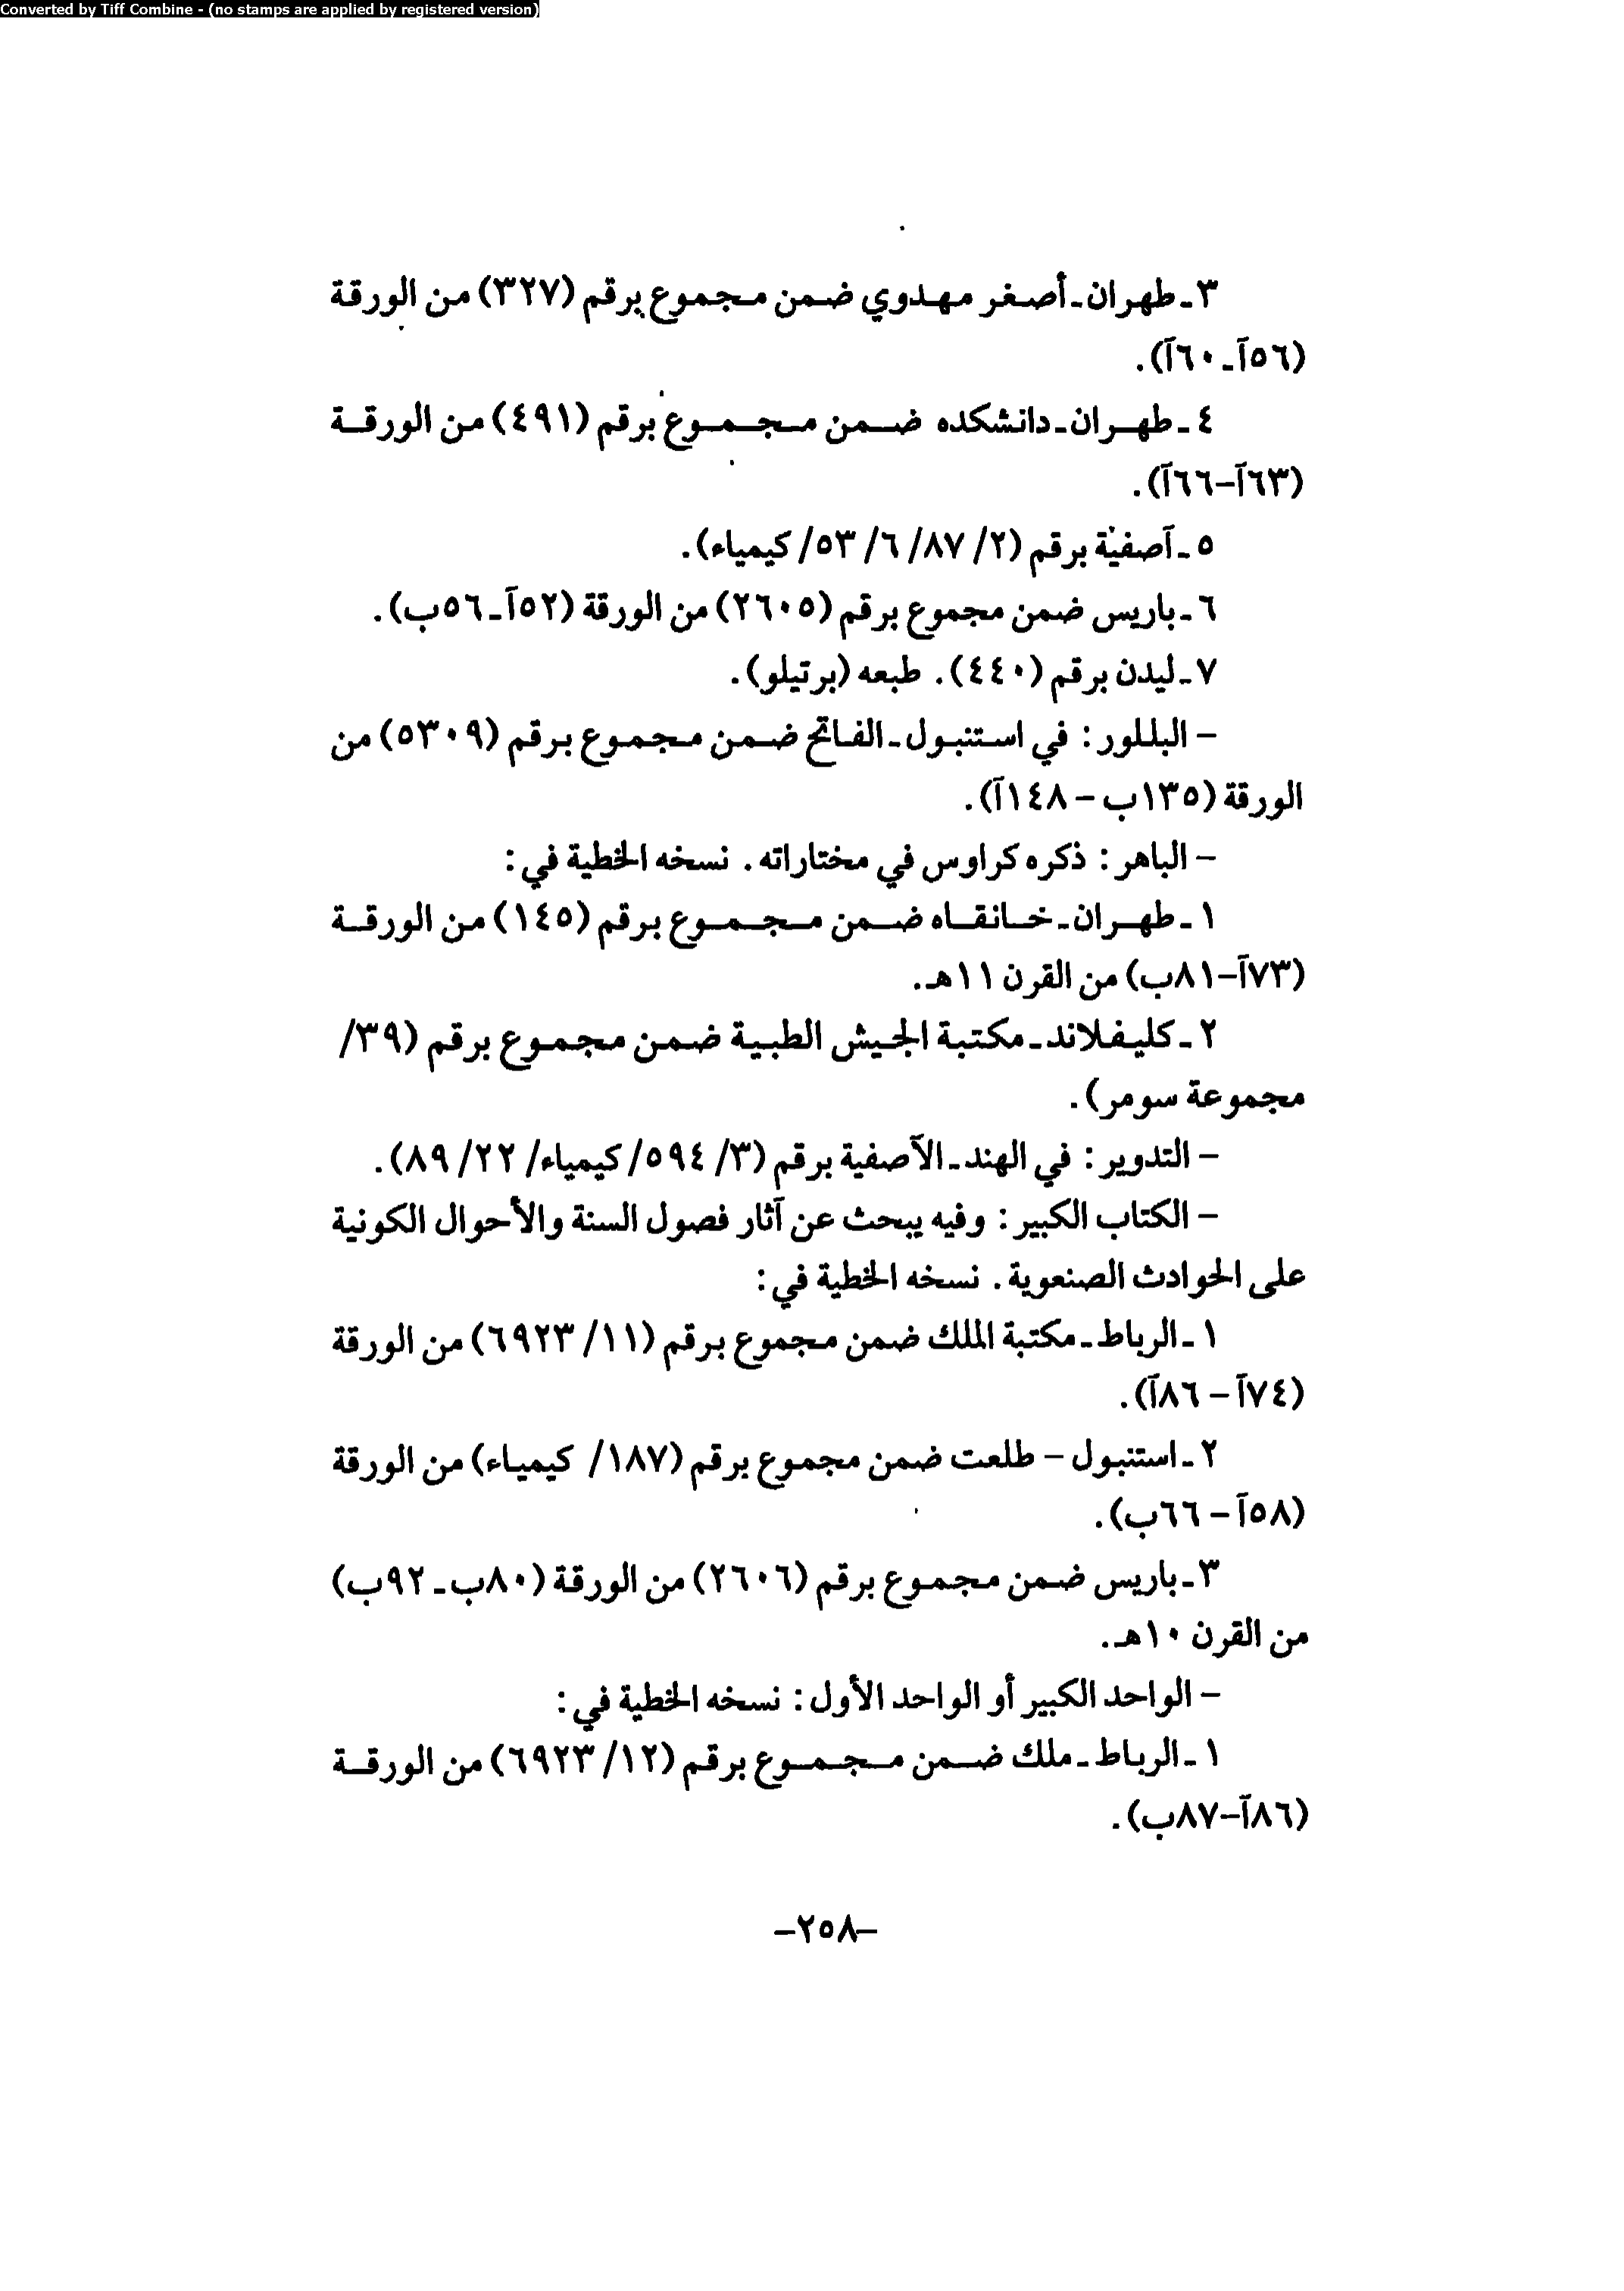 Converted by Tiff Combine - (no stamps are applied by registered version)
٣ ـ طهران ـ أصغر مهدوي ضمن مجموع برقم (٣٢٧) من الورقة
(٥٦آ ـ ٦٠آ).
٤ ـ طهران ـ دانشكده ضمن مجموع برقم (٤٩١) من الورقة
(٦٣آ–٦٦آ).
٥ ـ آصفية برقم (٢/ ٨٧/ ٦/ ٥٣/ كيمياء).
٦ ـ باريس ضمن مجموع برقم (٢٦٠٥) من الورقة (٥٢آ ـ ٥٦ب).
٧ ـ ليدن برقم (٤٤٠). طبعه (برتيلو).
– البللور: في استنبول ـ الفاتح ضمن مجموع برقم (٥٣٠٩) من
الورقة (١٣٥ب – ١٤٨آ).
– الباهر: ذكره كراوس في مختاراته. نسخه الخطية في:
١ ـ طهران ـ خانقاه ضمن مجموع برقم (١٤٥) من الورقة
(٧٣آ–٨١ب) من القرن ١١هـ.
٢ ـ كليفلاند ـ مكتبة الجيش الطبية ضمن مجموع برقم (٣٩/
مجموعة سومر).
– التدوير: في الهند ـ الآصفية برقم (٣/ ٥٩٤/ كيمياء/ ٢٢/ ٨٩).
– الكتاب الكبير: وفيه يبحث عن آثار فصول السنة والأحوال الكونية
على الحوادث الصنعوية. نسخه الخطية في:
١ ـ الرباط ـ مكتبة الملك ضمن مجموع برقم (١١/ ٦٩٢٣) من الورقة
(٧٤آ – ٨٦آ).
٢ ـ استنبول – طلعت ضمن مجموع برقم (١٨٧/ كيمياء) من الورقة
(٥٨آ – ٦٦ب).
٣ ـ باريس ضمن مجموع برقم (٢٦٠٦) من الورقة (٨٠ب ـ ٩٢ب)
من القرن ١٠هـ.
– الواحد الكبير أو الواحد الأول: نسخه الخطية في:
١ ـ الرباط ـ ملك ضمن مجموع برقم (١٢/ ٦٩٢٣) من الورقة
(٨٦آ–٨٧ب).
–٢٥٨–